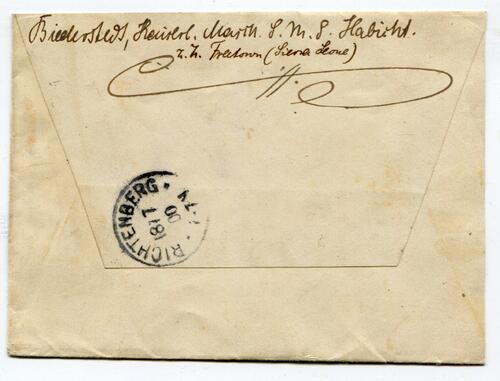 Biederstedt, Kaiserl. Marine S. M. S. Habicht.
z. Zt. Freetown (Sierra Leone)
RICHTENBERG
18 1
00